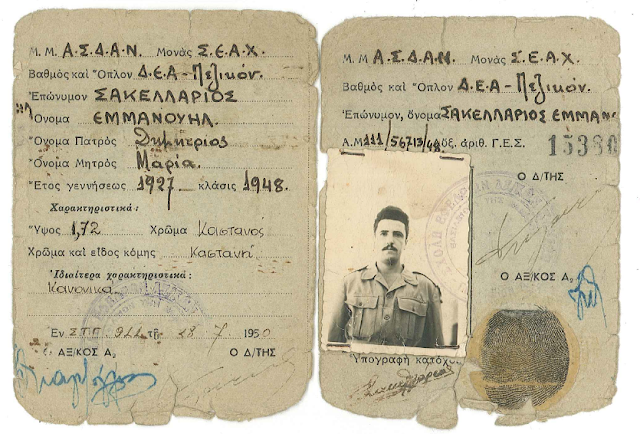 Μ. Μ. Α.Σ.ΔΑ.Ν. Μονὰς Σ.Ε.Α.Χ.
Βαθμὸς καὶ Ὅπλον Δ.Ε.Α-Πεζικόν.
Ἐπώνυμον ΣΑΚΕΛΛΑΡΙΟΣ
Ὄνομα ΕΜΜΑΝΟΥΗΛ.
Ὄνομα Πατρὸς Δημήτριος
Ὄνομα Μητρὸς Μαρία.
Ἔτος γεννήσεως 1927 κλάσις 1948.
Χαρακτηριστικά:
Ὕψος 1,72 Χρῶμα Καστανός
Χρῶμα καὶ εἶδος κόμης Καστανή
Ἰδιαίτερα χαρακτηριστικά:
Κανονικά
Ἐν Σ.Τ.Γ. 911 τῇ 28 7 1950
Ο ΑΞ/ΚΟΣ Α₂ Ο Δ/ΤΗΣ
Μ. Μ Α.Σ.ΔΑ.Ν. Μονὰς Σ.Ε.Α.Χ.
Βαθμὸς καὶ Ὅπλον Δ.Ε.Α-Πεζικόν.
Ἐπώνυμον, ὄνομα ΣΑΚΕΛΛΑΡΙΟΣ ΕΜΜΑΝ
Α.Μ 111/56713/48 Αὔξ. ἀριθ. Γ.Ε.Σ. 15380
Ο Δ/ΤΗΣ
Ο ΑΞ/ΚΟΣ Α₂
Ὑπογραφὴ κατόχ